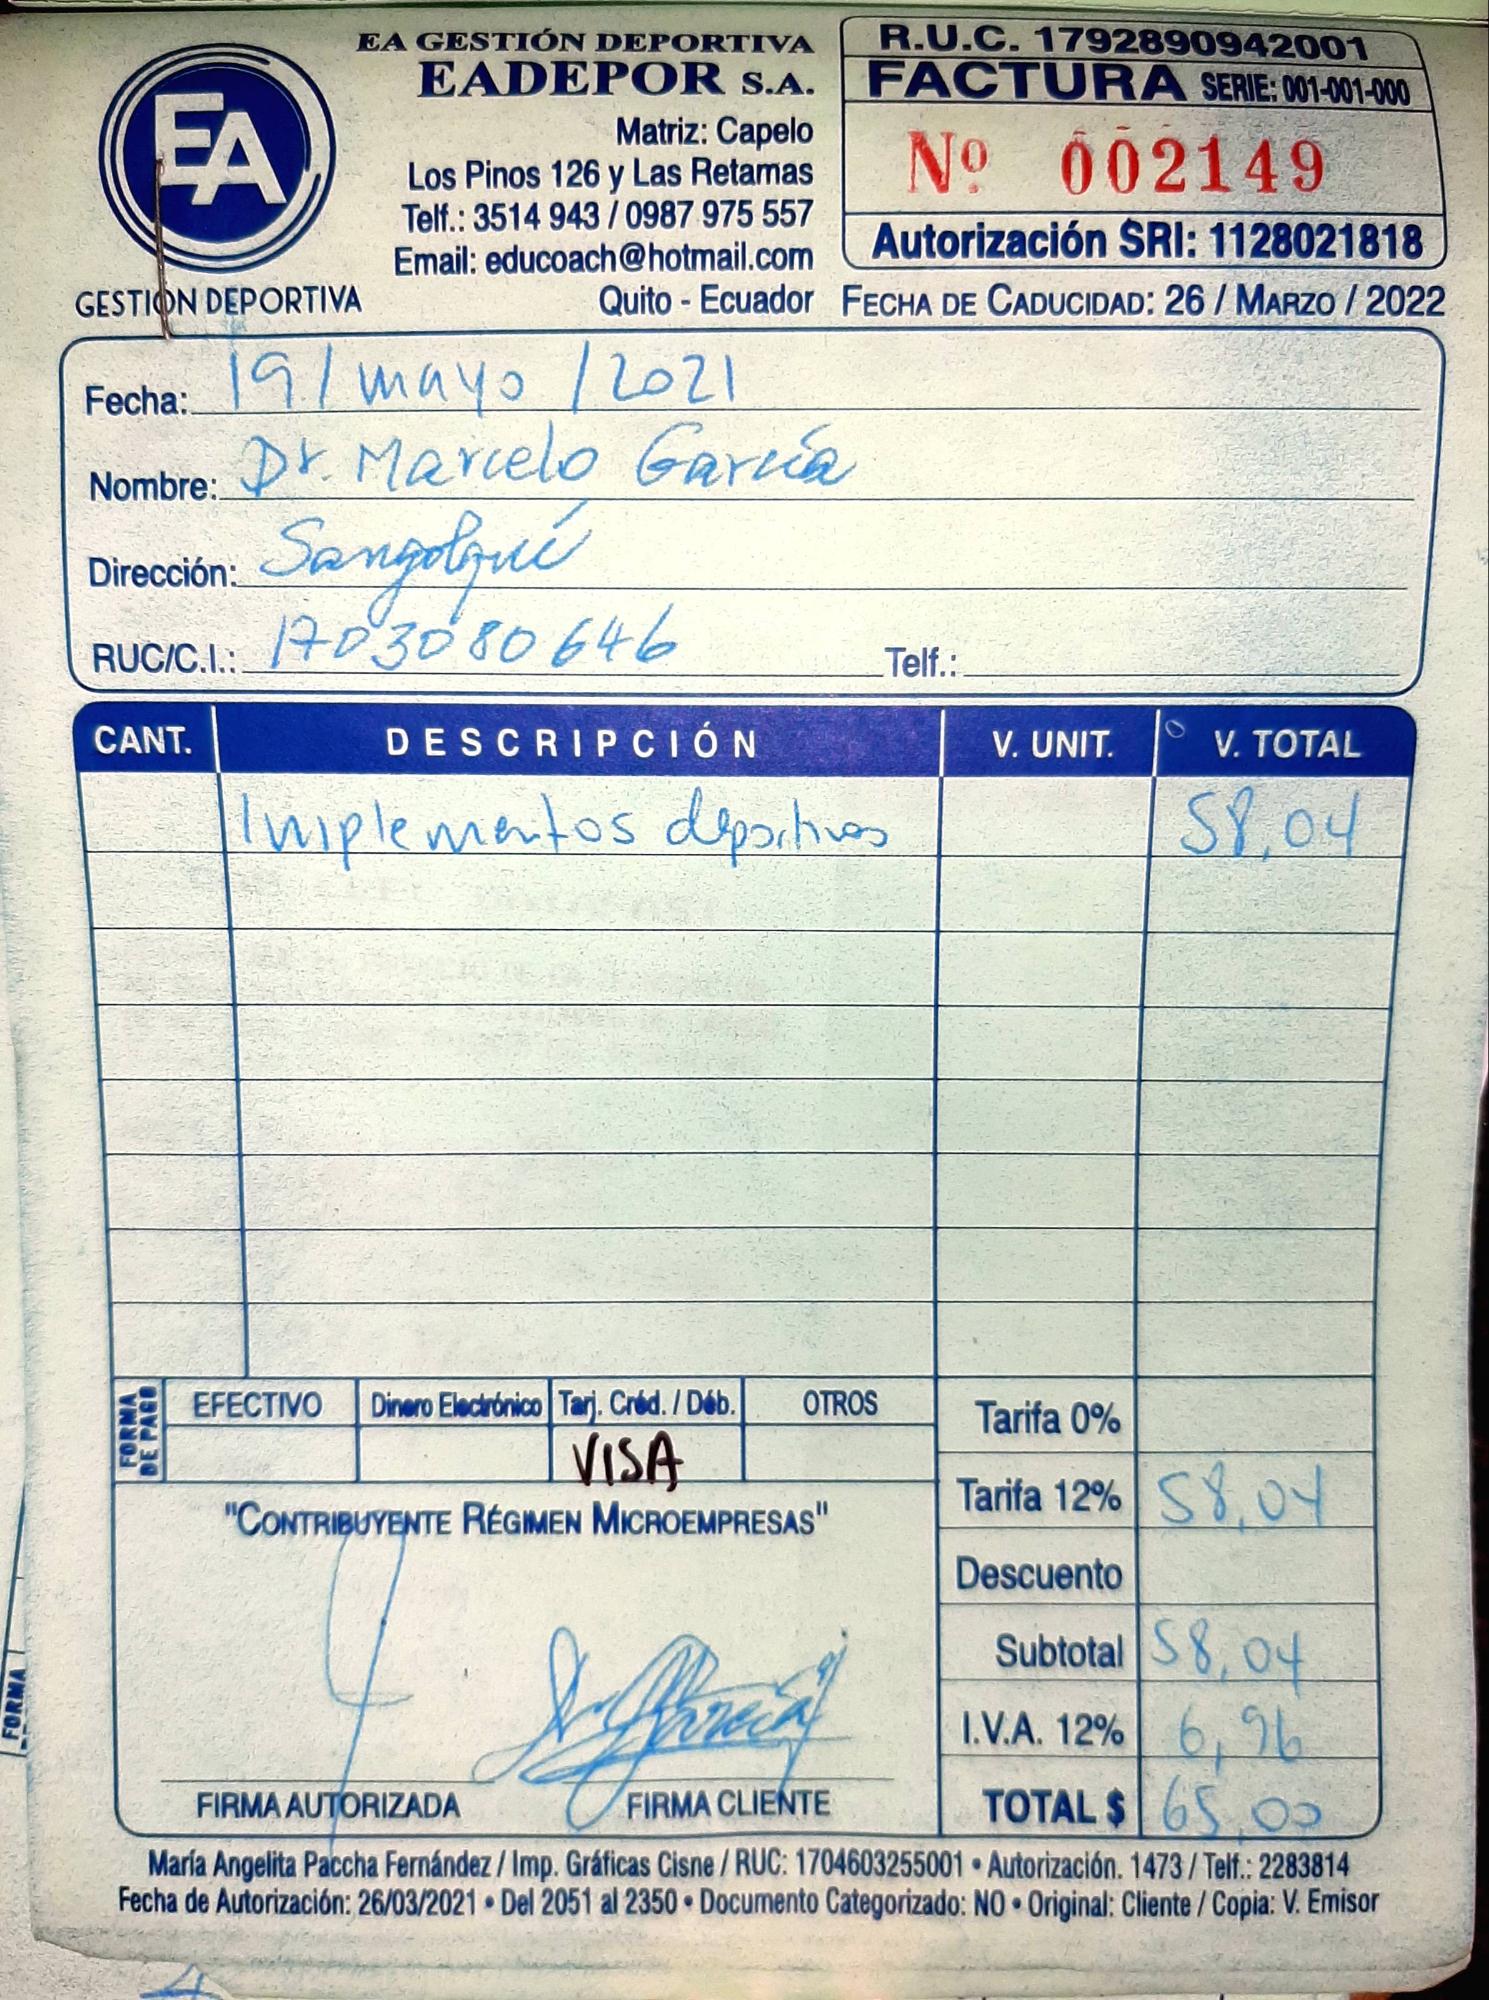 EA GESTIÓN DEPORTIVA
EADEPOR S.A.
Matriz: Capelo
Los Pinos 126 y Las Retamas
Telf.: 3514 943 / 0987 975 557
Email: educoach@hotmail.com
Quito - Ecuador
EA
GESTIÓN DEPORTIVA
R.U.C. 1792890942001
FACTURA SERIE: 001-001-000
Nº 002149
Autorización SRI: 1128021818
FECHA DE CADUCIDAD: 26 / MARZO / 2022
Fecha: 19/mayo/2021
Nombre: Dr. Marcelo García
Dirección: Sangolquí
RUC/C.I.: 1703080646 Telf.:
CANT. DESCRIPCIÓN V. UNIT. V. TOTAL
Implementos deportivos 58,04
FORMA DE PAGO
EFECTIVO Dinero Electrónico Tarj. Créd. / Déb. OTROS
VISA
Tarifa 0%
Tarifa 12% 58,04
Descuento
Subtotal 58,04
I.V.A. 12% 6,96
TOTAL $ 65,00
"CONTRIBUYENTE RÉGIMEN MICROEMPRESAS"
FIRMA AUTORIZADA FIRMA CLIENTE
María Angelita Paccha Fernández / Imp. Gráficas Cisne / RUC: 1704603255001 • Autorización. 1473 / Telf.: 2283814
Fecha de Autorización: 26/03/2021 • Del 2051 al 2350 • Documento Categorizado: NO • Original: Cliente / Copia: V. Emisor
FORMA